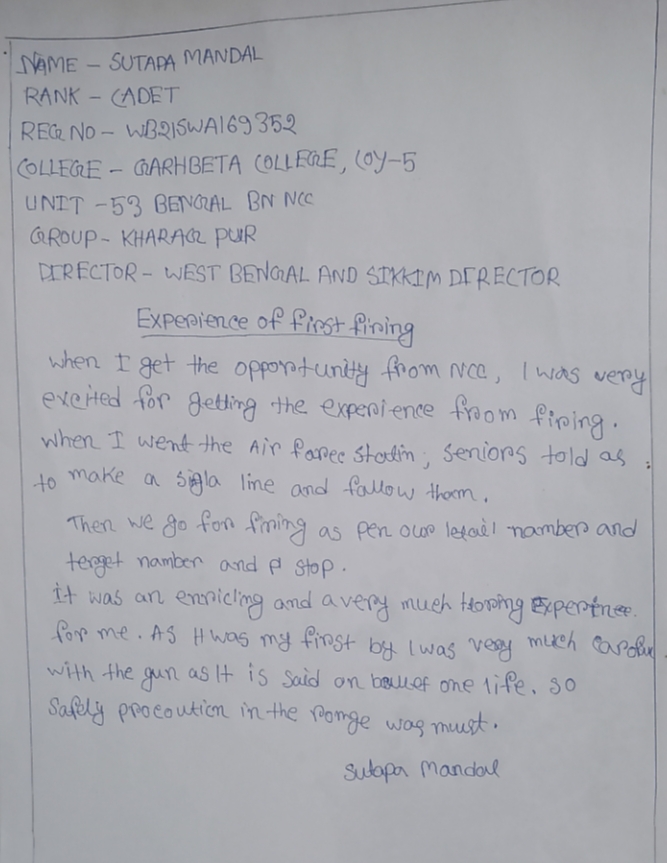 NAME - SUTAPA MANDAL
RANK - CADET
REG NO - WB21SWA169352
COLLEGE - GARHBETA COLLEGE, COY-5
UNIT - 53 BENGAL BN NCC
GROUP - KHARAG PUR
DIRECTOR - WEST BENGAL AND SIKKIM DIRECTOR
Experience of first firing
when I get the opportunity from NCC, I was very
excited for getting the experience from firing.
when I went the Air foree Stadin, seniors told as
to make a sigla line and fallow tham.
Then we go for firing as per our namber and
terget namber and stop.
It was an and a very much Experince.
for me. As It was my first by I was very much
with the gun as It is said on one life. so
Safely procoution in the romge was must.
Sutapa Mandal